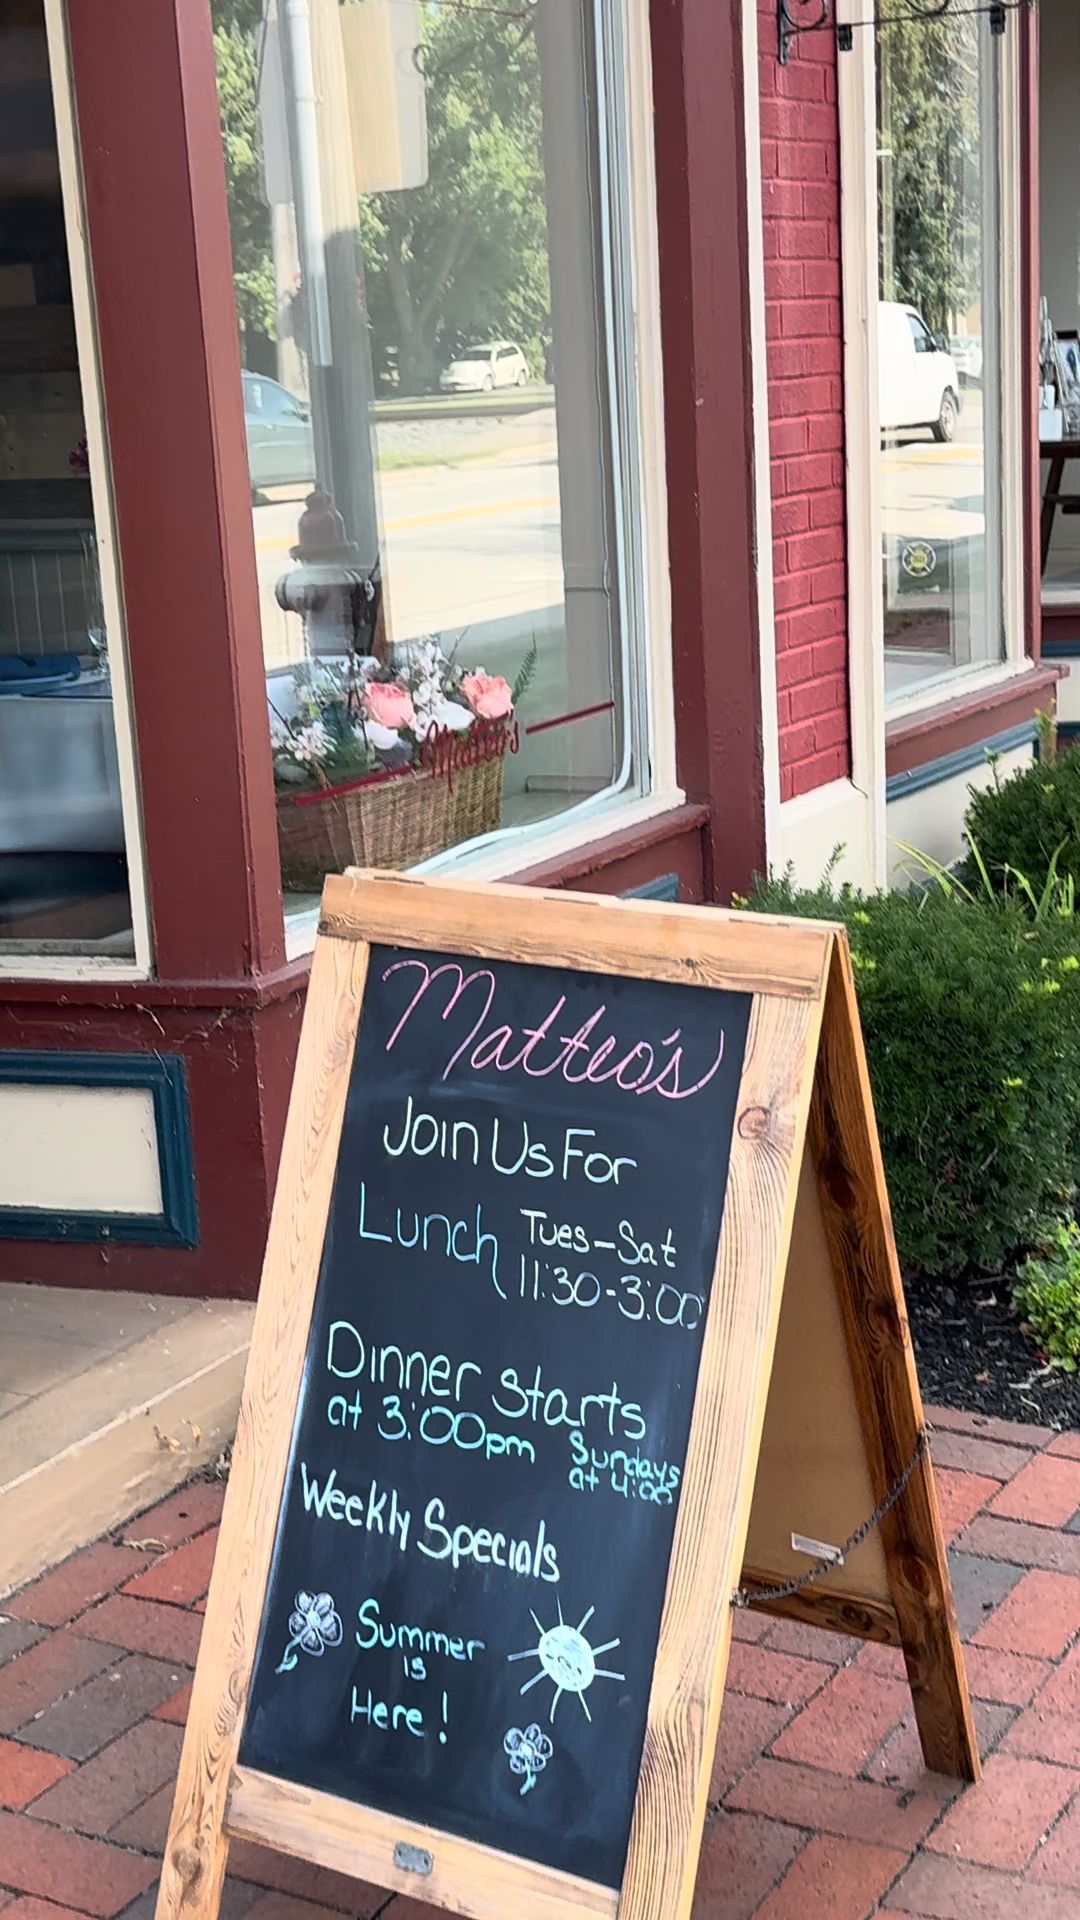 Matteo's
Matteo's
Join Us For
Lunch Tues-Sat
11:30-3:00
Dinner Starts
at 3:00pm Sundays
at 4:00
Weekly Specials
Summer
is
Here!